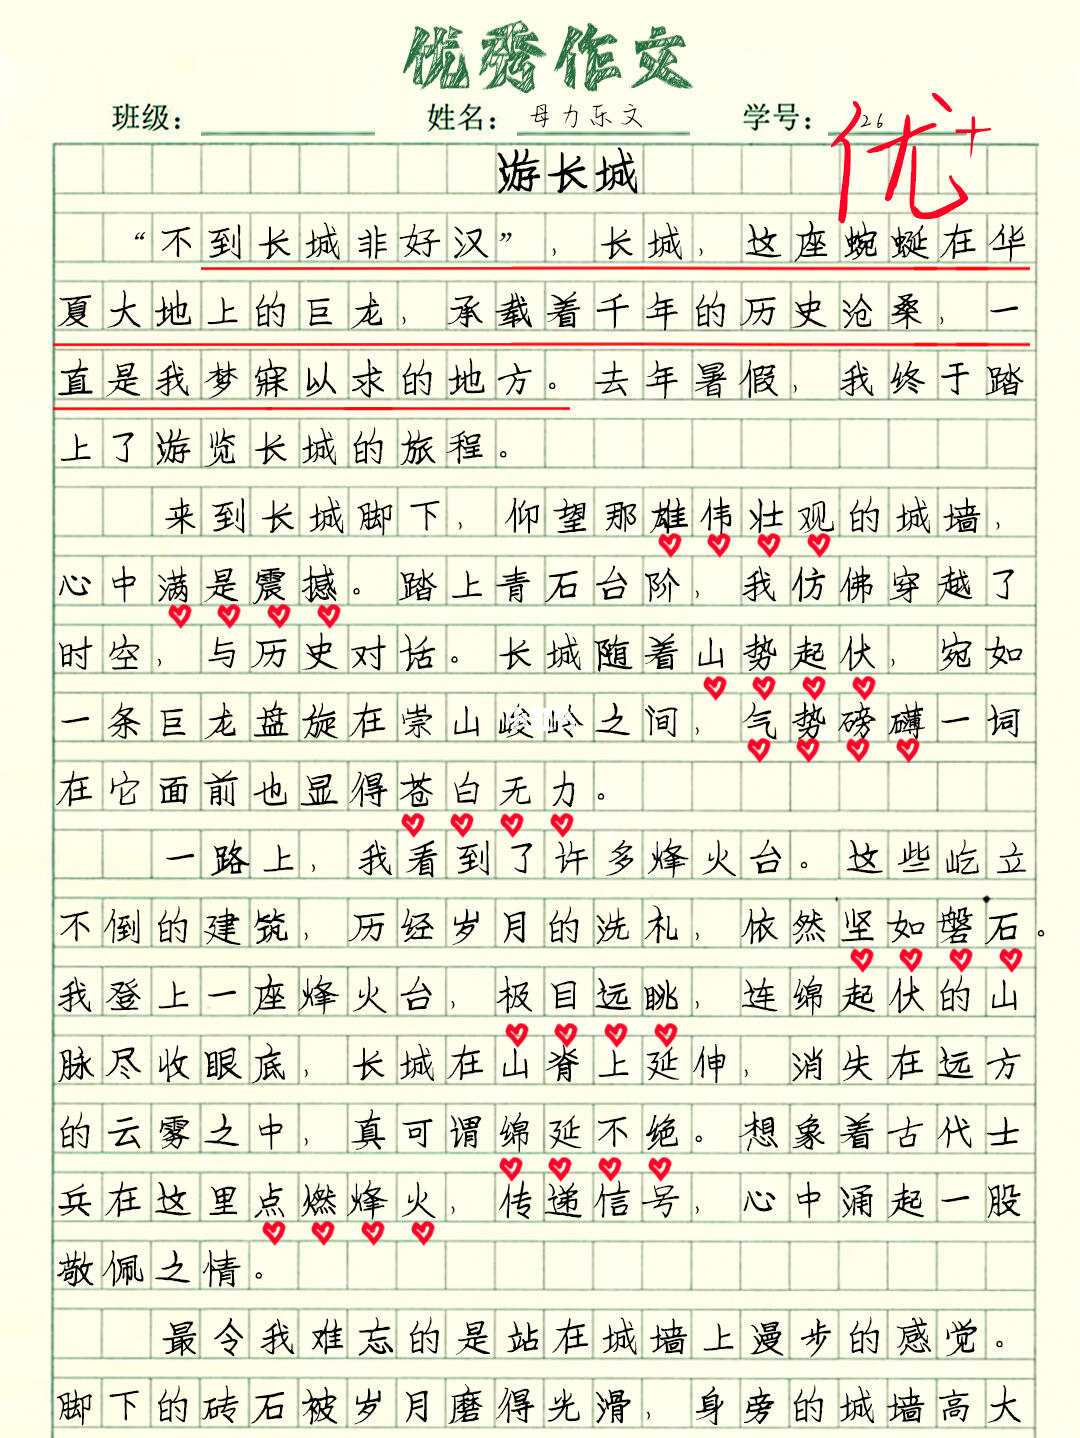 优秀作文
班级： 姓名：母力乐文 学号：26
优+
游长城
“不到长城非好汉”，长城，这座蜿蜒在华
夏大地上的巨龙，承载着千年的历史沧桑，一
直是我梦寐以求的地方。去年暑假，我终于踏
上了游览长城的旅程。
来到长城脚下，仰望那雄伟壮观的城墙，
心中满是震撼。踏上青石台阶，我仿佛穿越了
时空，与历史对话。长城随着山势起伏，宛如
一条巨龙盘旋在崇山峻岭之间，气势磅礴一词
在它面前也显得苍白无力。
一路上，我看到了许多烽火台。这些屹立
不倒的建筑，历经岁月的洗礼，依然坚如磐石。
我登上一座烽火台，极目远眺，连绵起伏的山
脉尽收眼底，长城在山脊上延伸，消失在远方
的云雾之中，真可谓绵延不绝。想象着古代士
兵在这里点燃烽火，传递信号，心中涌起一股
敬佩之情。
最令我难忘的是站在城墙上漫步的感觉。
脚下的砖石被岁月磨得光滑，身旁的城墙高大